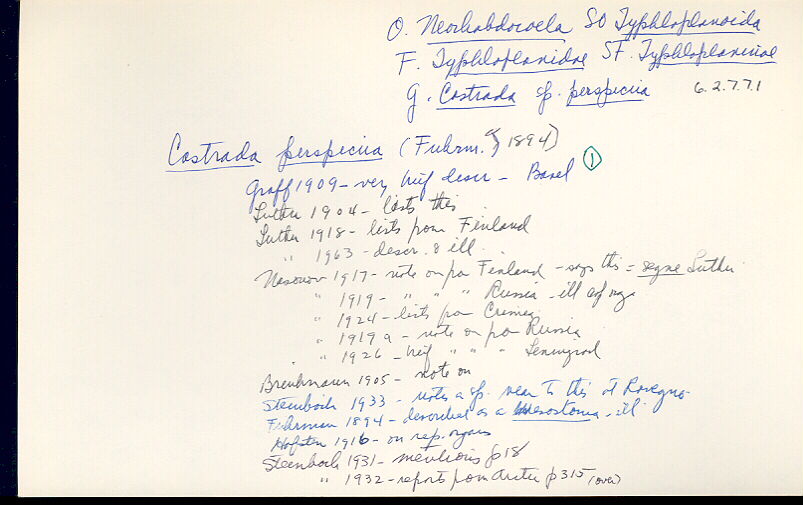 O. Neorhabdocoela SO Typhloplanoida
F. Typhloplanidae SF. Typhloplaninae
G. Castrada sp. perspecua 6.2.7.7.1
Castrada perspecua (Fuhrm., 1894) ①
Graff 1909 - very brief descr - Basel
Luther 1904 - lists this
Luther 1918 - lists from Finland
" 1963 - descr. & ill.
Nasonov 1917 - note on from Finland - says this = segne Luther
" 1919 - " " " Russia - ill of org
" 1924 - lists from Crimea
" 1919a - note on from Russia
" 1926 - brief " " " Leningrad
Brinkmann 1905 - note on
Steinböck 1933 - notes a sp. near to this at Rovigno
Fuhrman 1894 - described as a Mesostoma - ill
Hofsten 1916 - on rep. organs
Steinböck 1931 - mentions p 18
" 1932 - reports from Arctic p 315 (over)